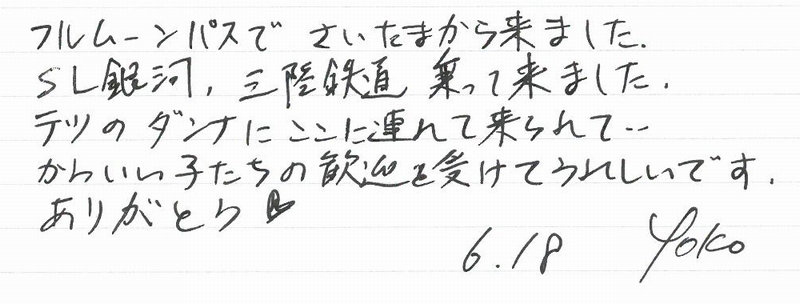 フルムーンパスで さいたまから来ました.
SL銀河, 三陸鉄道 乗って来ました.
テツの ダンナに ここに連れて来られて‥
かわいい子たちの歓迎を受けてうれしいです.
ありがとう
6.18 Yoko